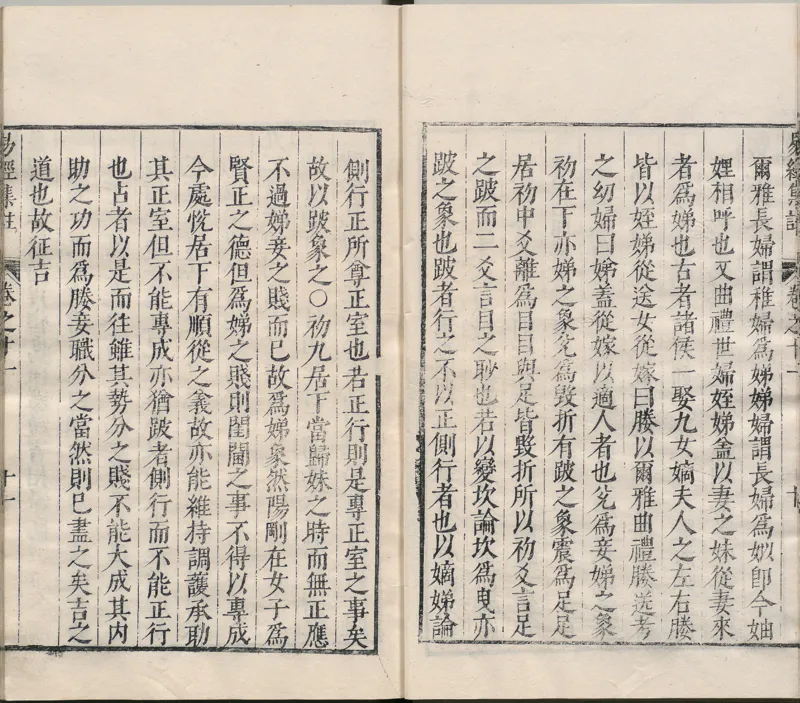 爾雅長婦謂稚婦爲娣娣婦謂長婦爲姒卽今妯
娌相呼也又曲禮世婦姪娣盖以妻之妹從妻來
者爲娣也古者諸侯一娶九女嫡夫人之左右媵
皆以姪娣從送女從嫁曰媵以爾雅曲禮媵送考
之幼婦曰娣盖從嫁以適人者也兊爲妾娣之象
初在下亦娣之象兊爲毀折有跛之象震爲足足
居初中爻離爲目目與足皆毀折所以初爻言足
之跛而二爻言目之眇也若以變坎論坎爲曳亦
跛之象也跛者行之不以正側行者也以嫡娣論
側行正所尊正室也若正行則是專正室之事矣
故以跛象之○初九居下當歸妹之時而無正應
不過娣妾之賤而已故爲娣象然陽剛在女子爲
賢正之德但爲娣之賤則閨閫之事不得以專成
今處恱居下有順從之義故亦能維持調護承助
其正室但不能專成亦猶跛者側行而不能正行
也占者以是而往雖其勢分之賤不能大成其内
助之功而爲媵妾職分之當然則已盡之矣吉之
道也故征吉
易經集註
卷之十一
十一